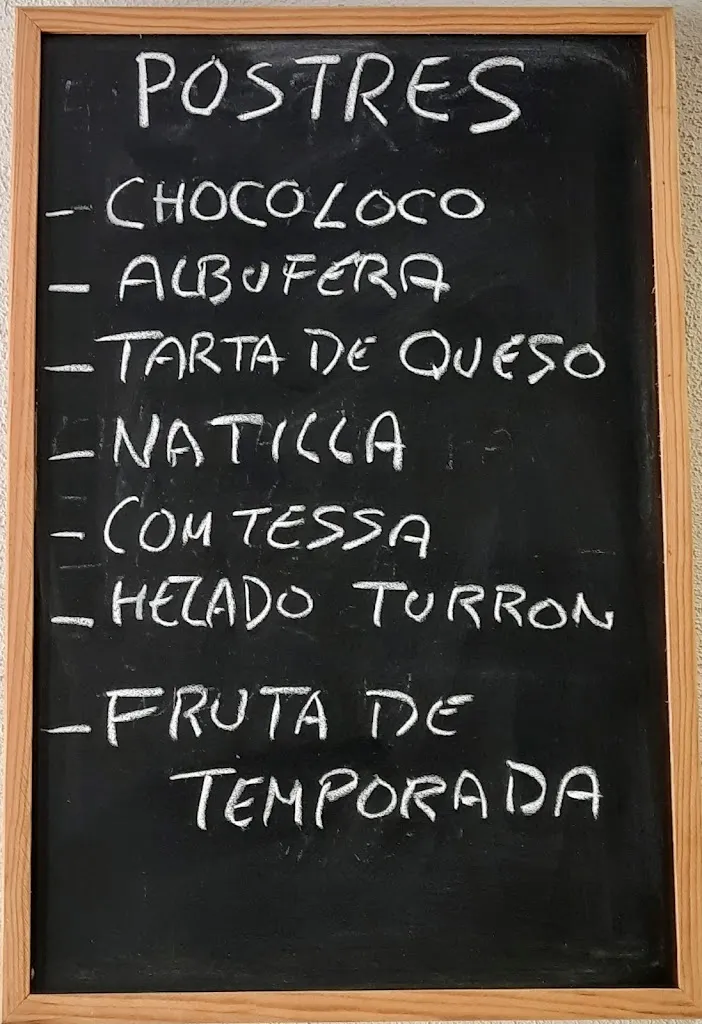 POSTRES
- CHOCOLOCO
- ALBUFERA
- TARTA DE QUESO
- NATILLA
- COMTESSA
- HELADO TURRON
- FRUTA DE
TEMPORADA